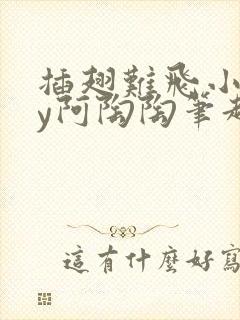 插翅難飛小
y阿陶陶筆趣
這有什麼好寫